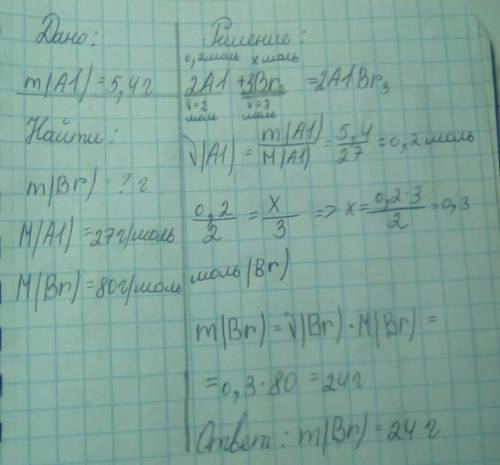 Дано:
m(Al) = 5,4г
Найти:
m(Br) = ? г
M(Al) = 27г/моль
M(Br) = 80г/моль
Решение:
0,2моль x моль
2Al + 3Br₂ = 2AlBr₃
ν=2 ν=3
моль моль
ν(Al) = m(Al)/M(Al) = 5,4/27 = 0,2 моль
0,2/2 = x/3 => x = 0,2·3/2 = 0,3
моль(Br)
m(Br) = ν(Br) · M(Br) =
= 0,3 · 80 = 24г
Ответ: m(Br) = 24 г